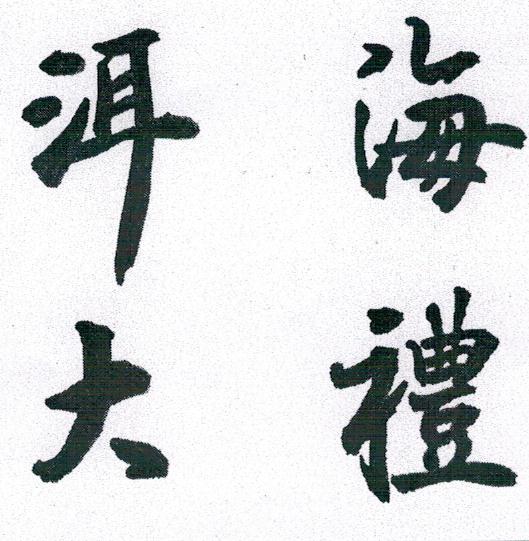 洱海
大禮